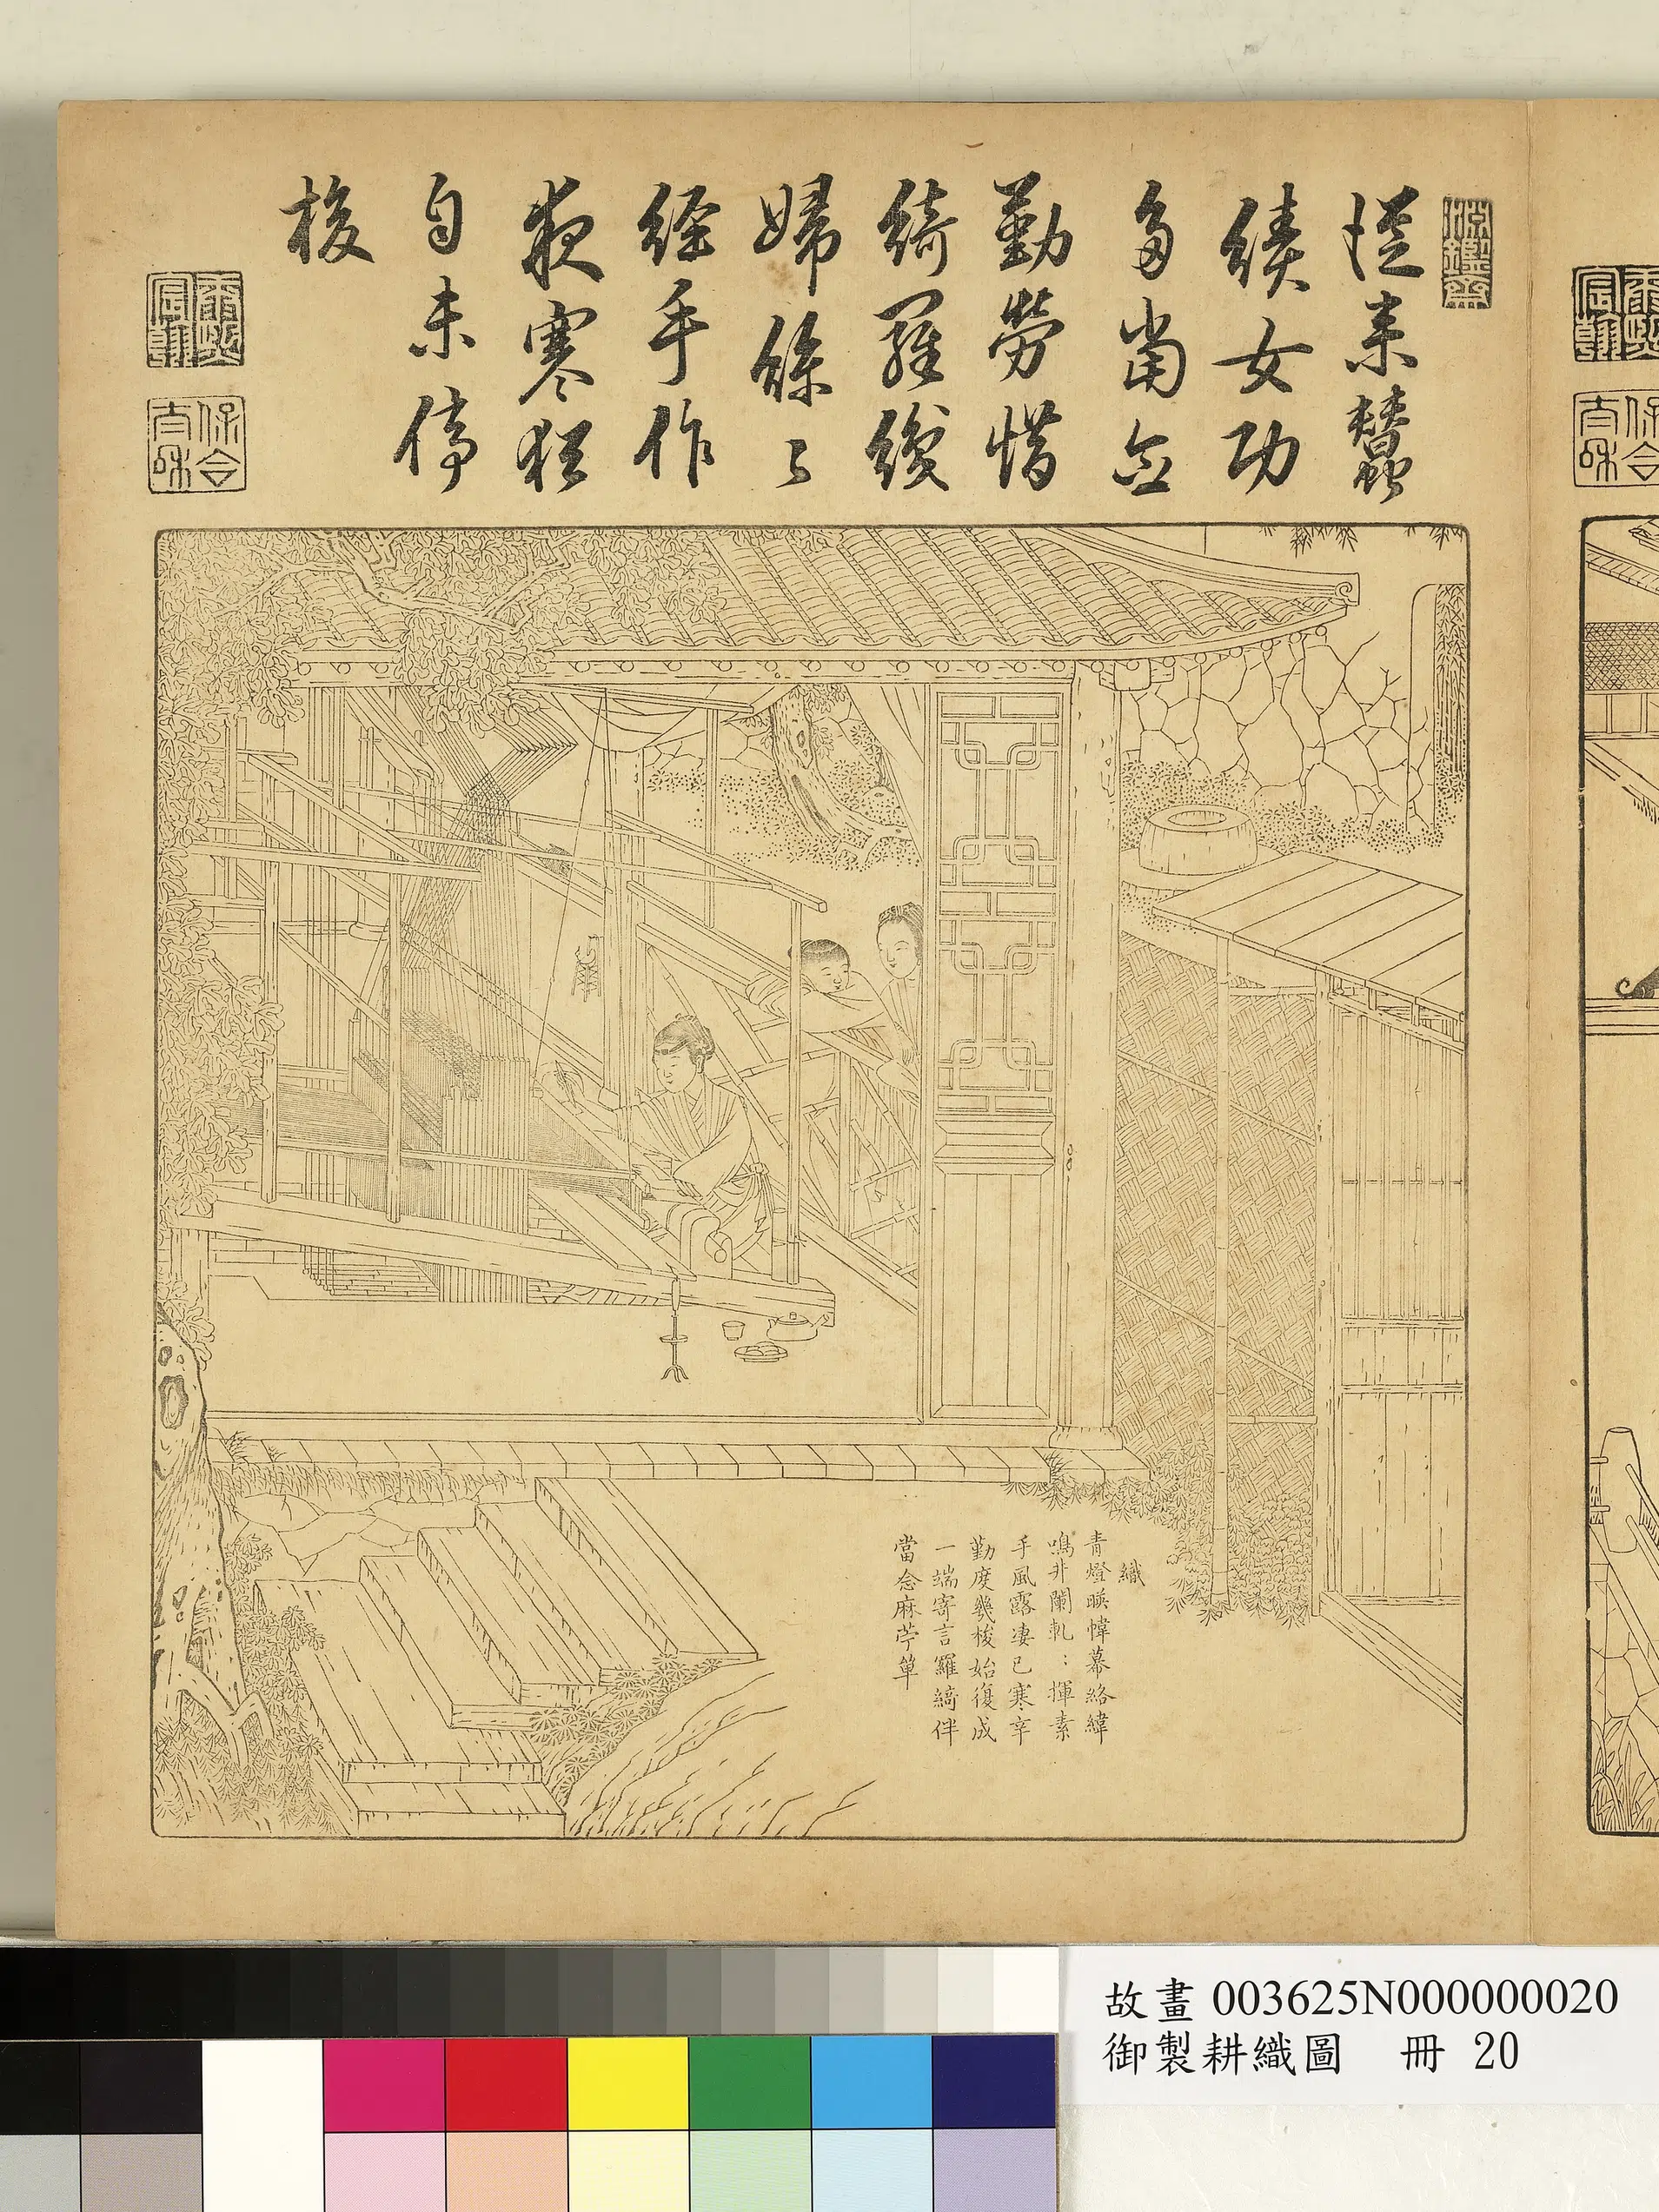 淵鑒齋
從来蠶
績女功
多當念
勤勞惜
綺羅織
婦絲〻
經手作
夜寒猶
自未停
梭
康熙
宸翰
保合
太和
織
青燈暎幃幕絡緯
鳴井闌軋〻揮素
手風露凄已寒辛
勤度幾梭始復成
一端寄言羅綺伴
當念麻苧單
故畫 003625N000000020
御製耕織圖 冊 20